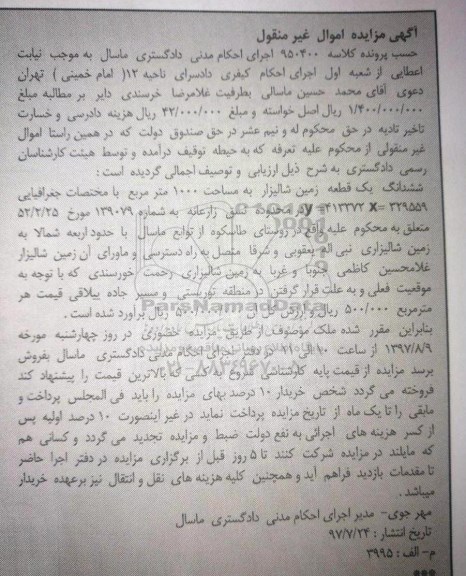 آگهی مزایده اموال غیر منقول
حسب پرونده کلاسه ۹۵۰۴۰۰ اجرای احکام مدنی دادگستری ماسال به موجب نیابت
اعطایی از شعبه اول اجرای احکام کیفری دادسرای ناحیه ۱۲( امام خمینی ) تهران
دعوی آقای محمد حسین ماسالی بطرفیت غلامرضا خرسندی دایر بر مطالبه مبلغ
۱/۴۰۰/۰۰۰/۰۰۰ ریال اصل خواسته و مبلغ ۴۲/۰۰۰/۰۰۰ ریال هزینه دادرسی و خسارت
تاخیر تادیه در حق محکوم له و نیم عشر در حق صندوق دولت که در همین راستا اموال
غیر منقولی از محکوم علیه تعرفه که به حیطه توقیف درآمده و توسط هیئت کارشناسان
رسمی دادگستری به شرح ذیل ارزیابی و توصیف اجمالی گردیده است :
ششدانگ یک قطعه زمین شالیزار به مساحت ۱۰۰۰ متر مربع با مختصات جغرافیایی
x= ۳۲۹۵۵۹ y =۴۱۳۳۷۲ در محدوده نسق زارعانه به شماره ۱۳۹۰۷۹ مورخ ۵۲/۲/۲۵
متعلق به محکوم علیه واقع در روستای طاسکوه از توابع ماسال با حدود اربعه شمالا به
زمین شالیزاری نبی اله یعقوبی و شرقا متصل به راه دسترسی و ماورای آن زمین شالیزار
غلامحسین کاظمی جنوبا و غربا به زمین شالیزاری رحمت خورسندی که با توجه به
موقعیت فعلی و به علت قرار گرفتن در منطقه توریستی و مسیر جاده ییلاقی قیمت هر
مترمربع ۵۰۰/۰۰۰ ریال و ارزش کل ریال برآورد شده است .
بنابراین مقرر شده ملک موصوف از طریق مزایده حضوری در روز چهارشنبه مورخه
۱۳۹۷/۸/۹ از ساعت ۱۰ الی ۱۱ در دفتر اجرای احکام مدنی دادگستری ماسال بفروش
برسد مزایده از قیمت پایه کارشناسی شروع و کسی که بالاترین قیمت را پیشنهاد کند
فروخته می گردد شخص خریدار ۱۰ درصد بهای مزایده را باید فی المجلس پرداخت و
مابقی را تا یک ماه از تاریخ مزایده پرداخت نماید در غیر اینصورت ۱۰ درصد اولیه پس
از کسر هزینه های اجرائی به نفع دولت ضبط و مزایده تجدید می گردد و کسانی هم
که مایلند در مزایده شرکت کنند تا ۵ روز قبل از برگزاری مزایده در دفتر اجرا حاضر
تا مقدمات بازدید فراهم آید و همچنین کلیه هزینه های نقل و انتقال نیز برعهده خریدار
میباشد .
مهر جوی- مدیر اجرای احکام مدنی دادگستری ماسال
تاریخ انتشار : ۹۷/۷/۲۴
م- الف : ۳۹۹۵
ParsNamadData